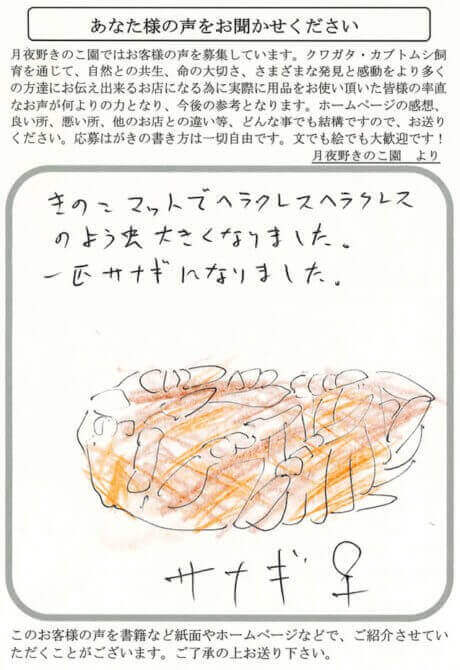 あなた様の声をお聞かせください
月夜野きのこ園ではお客様の声を募集しています。クワガタ・カブトムシ飼
育を通じて、自然との共生、命の大切さ、さまざまな発見と感動をより多く
の方達にお伝え出来るお店になる為に実際に用品をお使い頂いた皆様の率直
なお声が何よりの力となり、今後の参考となります。ホームページの感想、
良い所、悪い所、他のお店との違い等、どんな事でも結構ですので、お送り
ください。応募はがきの書き方は一切自由です。文でも絵でも大歓迎です！
月夜野きのこ園　より
きのこマットでヘラクレスヘラクレス
のよう虫大きくなりました。
一匹サナギになりました。
サナギ♀
このお客様の声を書籍など紙面やホームページなどで、ご紹介させてい
ただくことがございます。ご了承の上お送り下さい。